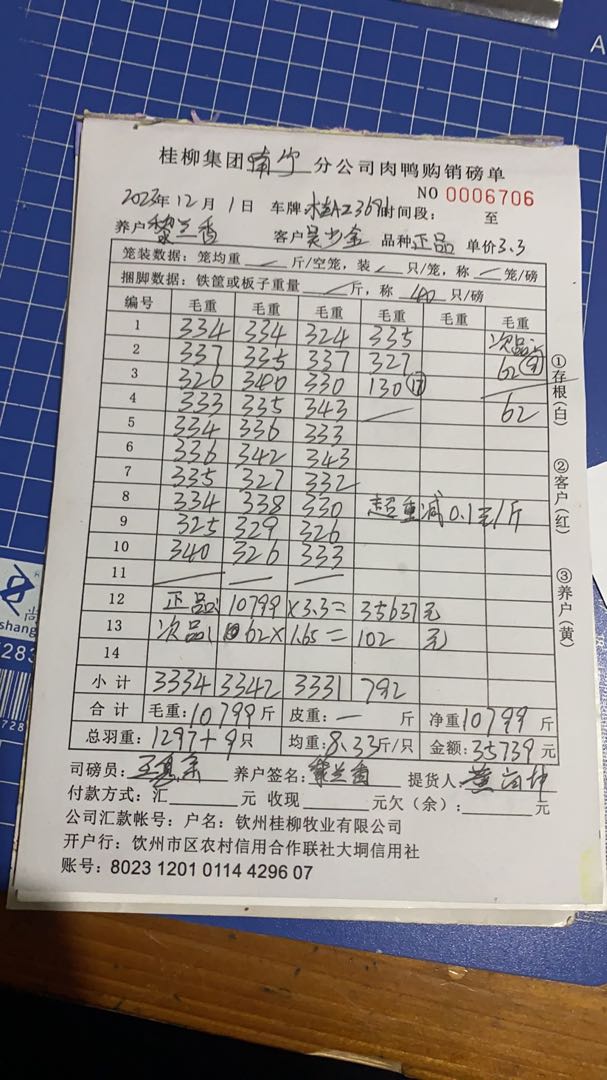 桂柳集团南宁分公司肉鸭购销磅单
NO 0006706
2023年12月1日 车牌 时间段: 至
养户黎兰香 客户吴少金 品种正品 单价3.3
笼装数据:笼均重 — 斤/空笼,装 — 只/笼,称 — 笼/磅
捆脚数据:铁筐或板子重量 — 斤,称 40 只/磅
编号 毛重 毛重 毛重 毛重 毛重 毛重
1 334 334 324 335 次品:
2 337 335 337 327 62(9)
3 326 340 330 130(17)
4 333 335 343 — 62
5 334 336 333
6 336 342 343
7 335 327 332
8 334 338 330 超重减0.1元/斤
9 325 329 326
10 340 326 333
11 — — —
12 正品: 10799×3.3=35637元
13 次品: 62×1.65=102元
14
小计 3334 3342 3331 792
合计 毛重:10799斤 皮重:—斤 净重10799斤
总羽重:1297+9只 均重:8.33斤/只 金额:35739元
司磅员: 养户签名:黎兰香 提货人:
付款方式:汇 元 收现 元欠(余): 元
公司汇款帐号:户名:钦州桂柳牧业有限公司
开户行:钦州市区农村信用合作联社大垌信用社
账号:8023 1201 0114 4296 07
①存根(白)
②客户(红)
③养户(黄)
A
尚
shang
283
728